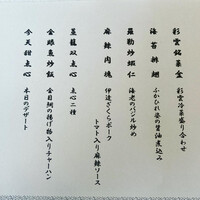 彩雲銘菜盒 彩雲冷菜盛り合わせ
海苔排翅 ふかひれ姿の醤油煮込み
羅勒炒蝦仁 海老のバジル炒め
麻辣肉塊 伊達ざくらポーク
トマト入り麻辣ソース
蒸籠双点心 点心二種
金銀魚炒飯 金目鯛の揚げ物入りチャーハン
今天甜点心 本日のデザート